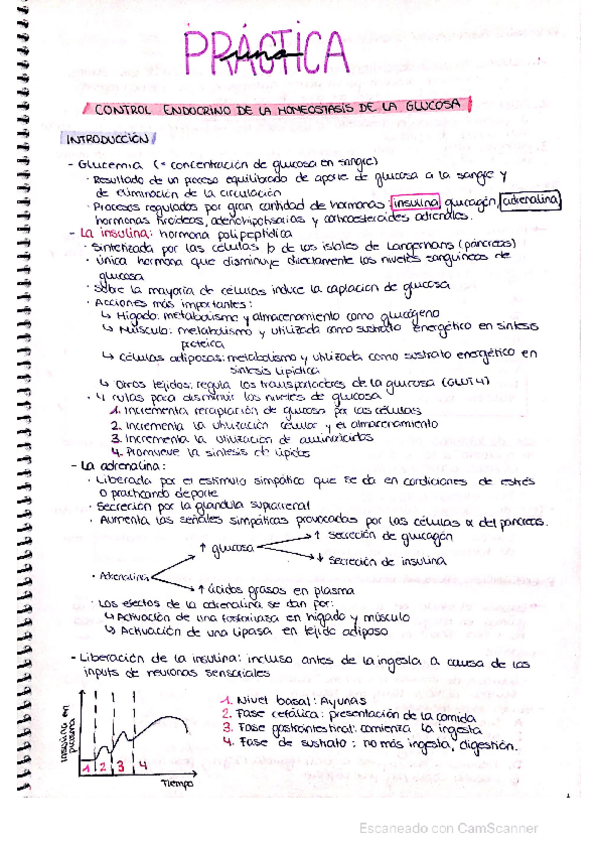 PRÁCTICA
uno
CONTROL ENDOCRINO DE LA HOMEOSTASIS DE LA GLUCOSA
INTRODUCCIÓN
- Glucemia (= concentración de glucosa en sangre)
· Resultado de un proceso equilibrado de aporte de glucosa a la sangre y
de eliminación de la circulación
· Procesos regulados por gran cantidad de hormonas: insulina, glucagón, adrenalina,
hormonas tiroideas, adenohipofisarias y corticoesteroides adrenales.
- La insulina: hormona polipeptídica
· Sintetizada por las células β de los islotes de Langerhans (páncreas)
· Única hormona que disminuye directamente los niveles sanguíneos de
glucosa
· Sobre la mayoría de células induce la captación de glucosa
· Acciones más importantes:
↳ Hígado: metabolismo y almacenamiento como glucógeno
↳ Músculo: metabolismo y utilizada como sustrato energético en síntesis
proteica
↳ Células adiposas: metabolismo y utilizada como sustrato energético en
síntesis lipídica
↳ Otros tejidos: regula los transportadores de la glucosa (GLUT4)
· 4 rutas para disminuir los niveles de glucosa
1. Incrementa recaptación de glucosa por las células
2. Incrementa la utilización celular y el almacenamiento
3. Incrementa la utilización de aminoácidos
4. Promueve la síntesis de lípidos
- La adrenalina:
· Liberada por el estímulo simpático que se da en condiciones de estrés
o practicando deporte
· Secreción por la glándula suprarrenal
· Aumenta las señales simpáticas provocadas por las células α del páncreas.
↑ secreción de glucagón
↑ glucosa
↓ secreción de insulina
· Adrenalina
↑ ácidos grasos en plasma
· Los efectos de la adrenalina se dan por:
↳ Activación de una fosforilasa en hígado y músculo
↳ Activación de una lipasa en tejido adiposo
- Liberación de la insulina: incluso antes de la ingesta a causa de los
inputs de neuronas sensoriales
Insulina en
plasma
1 2 3 4
Tiempo
1. Nivel basal: Ayunas
2. Fase cefálica: presentación de la comida
3. Fase gastrointestinal: comienza la ingesta
4. Fase de sustrato: no más ingesta, digestión.
Escaneado con CamScanner